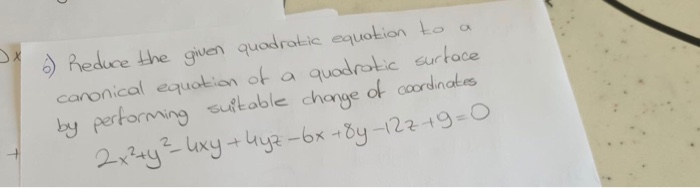 6) Reduce the given quadratic equation to a
canonical equation of a quadratic surface
by performing suitable change of coordinates
2x²+y²-4xy+4yz-6x+8y-12z+9=0